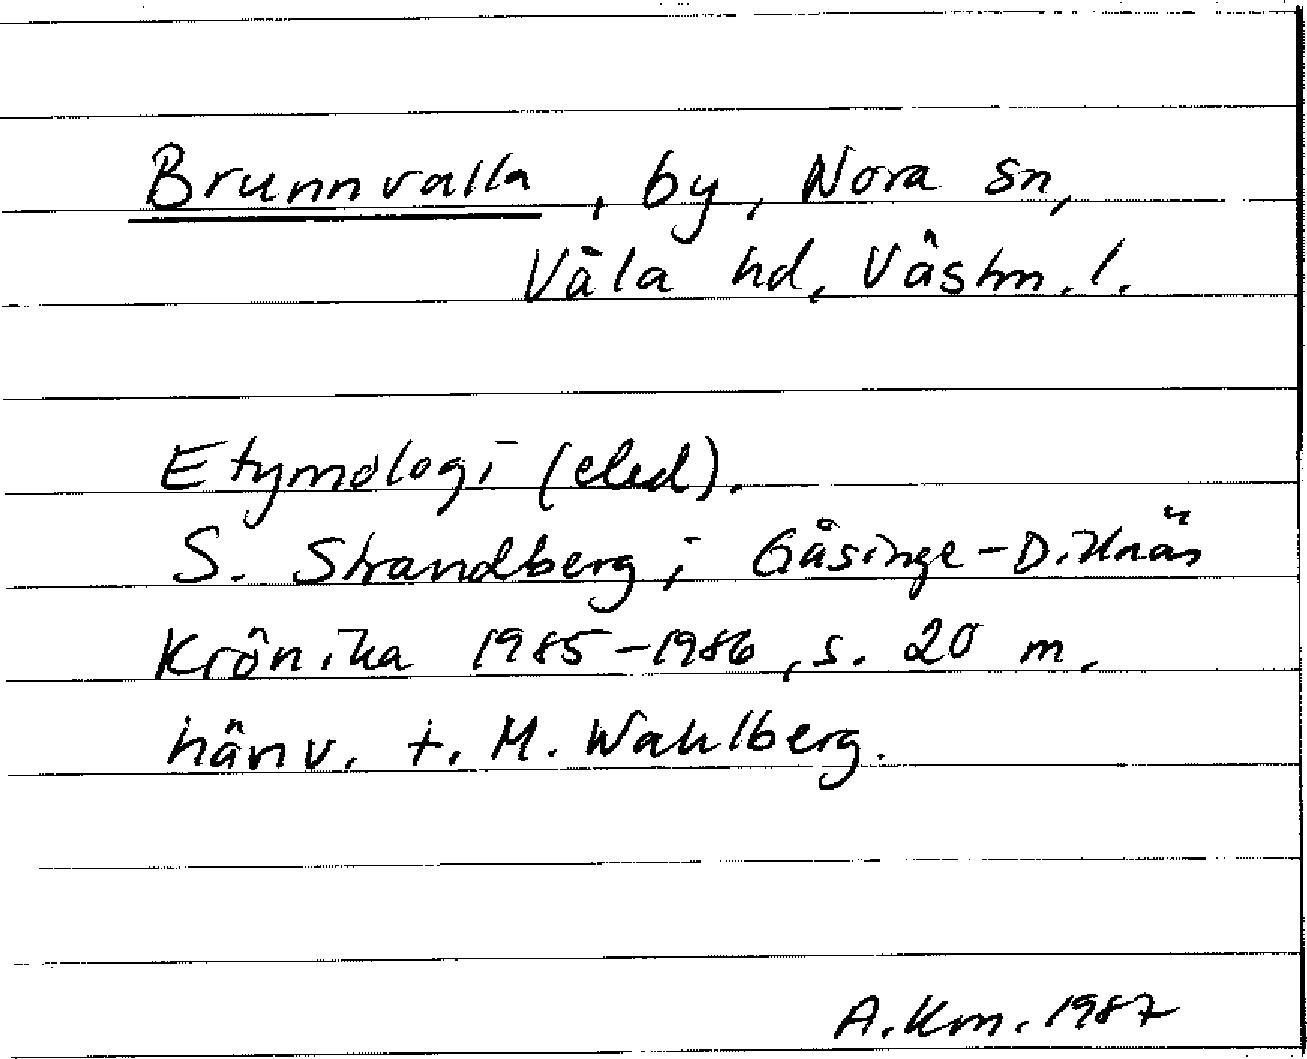 Brunnvalla, by, Nora sn,
Våla hd, Västm. l.
Etymologi (eled).
S. Strandberg i Gåsinge-Dillnäs
Krönika 1985-1986, s. 20 m.
hänv. t. M. Wahlberg.
A. Km. 1987